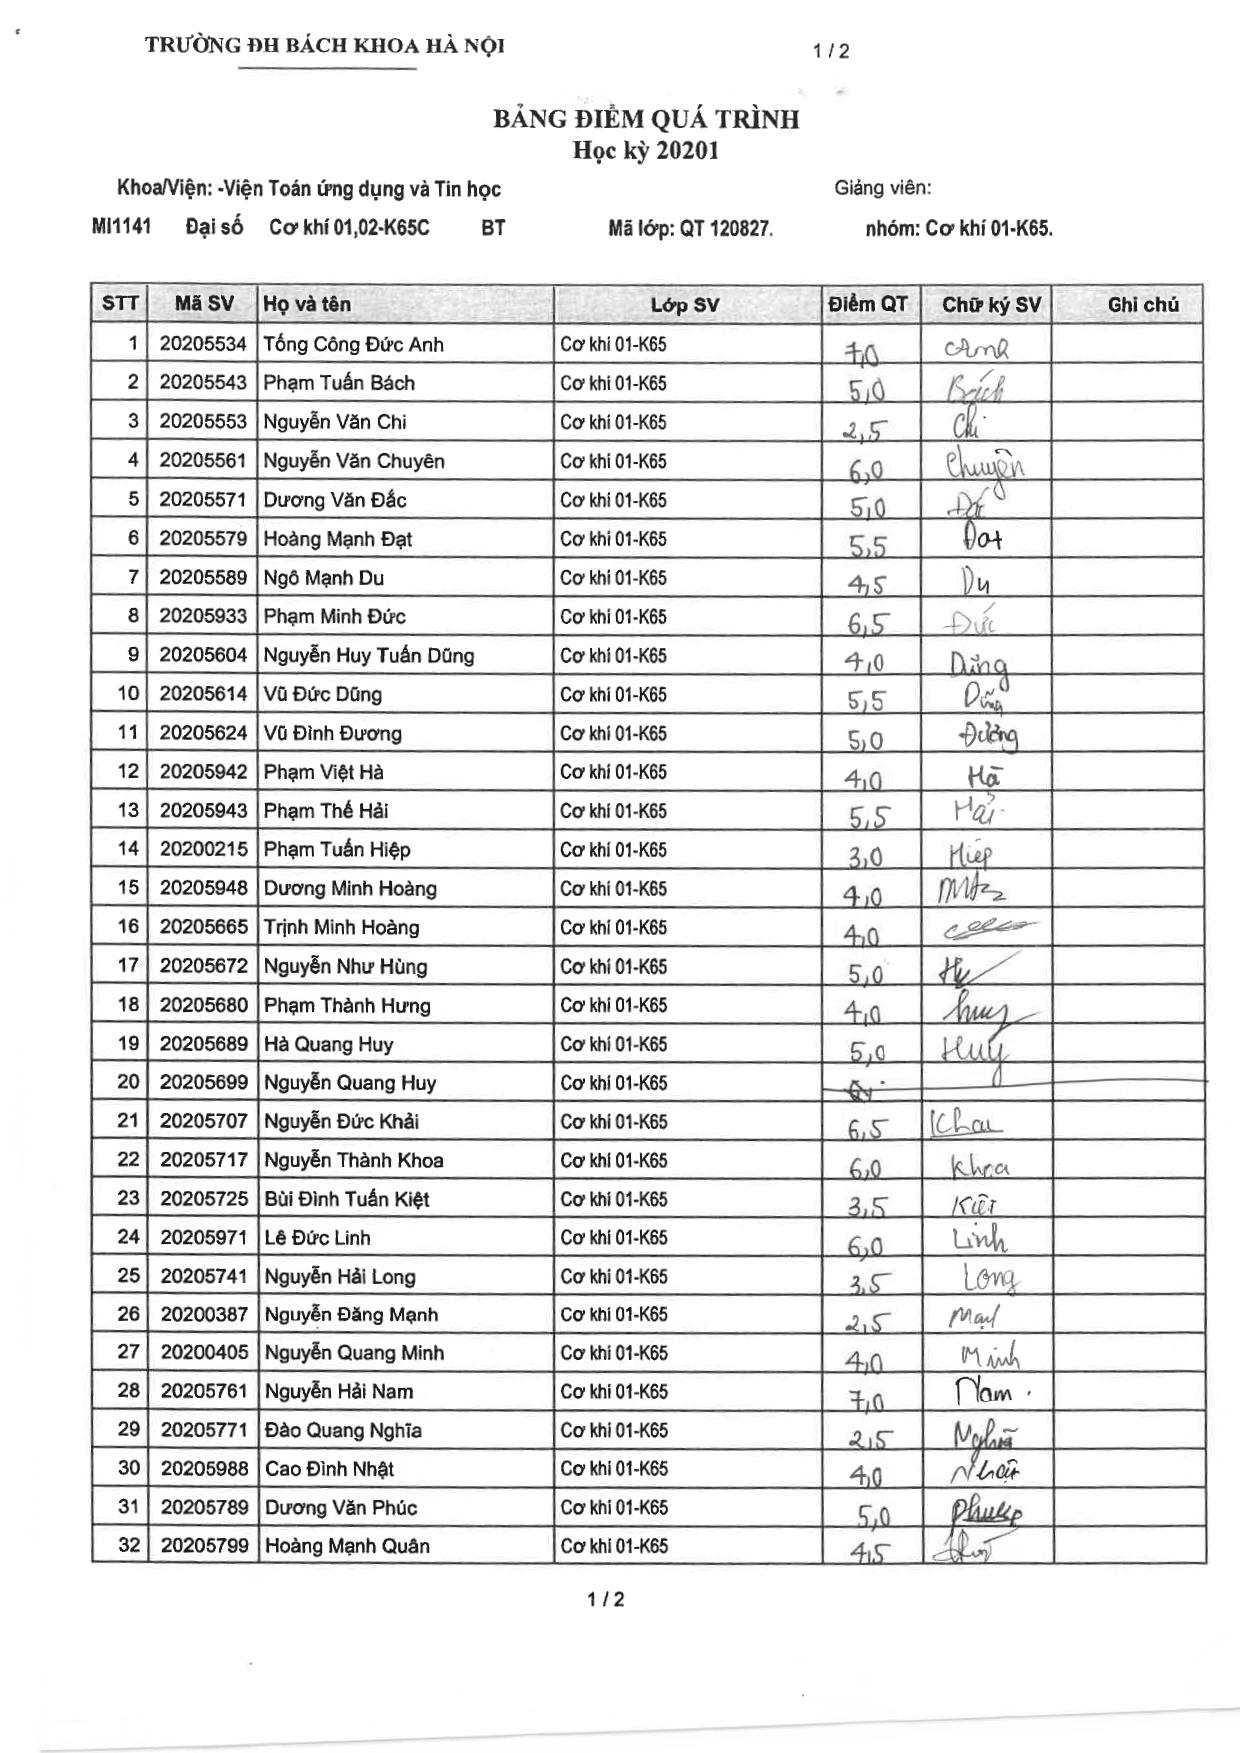 TRƯỜNG ĐH BÁCH KHOA HÀ NỘI 1 / 2
BẢNG ĐIỂM QUÁ TRÌNH
Học kỳ 20201
Khoa/Viện: -Viện Toán ứng dụng và Tin học Giảng viên:
MI1141 Đại số Cơ khí 01,02-K65C BT Mã lớp: QT 120827. nhóm: Cơ khí 01-K65.
STT Mã SV Họ và tên Lớp SV Điểm QT Chữ ký SV Ghi chú
1 20205534 Tống Công Đức Anh Cơ khí 01-K65 7,0 Anh
2 20205543 Phạm Tuấn Bách Cơ khí 01-K65 5,0 Bách
3 20205553 Nguyễn Văn Chi Cơ khí 01-K65 2,5 Chi
4 20205561 Nguyễn Văn Chuyên Cơ khí 01-K65 6,0 Chuyên
5 20205571 Dương Văn Đắc Cơ khí 01-K65 5,0
6 20205579 Hoàng Mạnh Đạt Cơ khí 01-K65 5,5 Đạt
7 20205589 Ngô Mạnh Du Cơ khí 01-K65 4,5 Du
8 20205933 Phạm Minh Đức Cơ khí 01-K65 6,5 Đức
9 20205604 Nguyễn Huy Tuấn Dũng Cơ khí 01-K65 4,0 Dũng
10 20205614 Vũ Đức Dũng Cơ khí 01-K65 5,5 Dũng
11 20205624 Vũ Đình Đương Cơ khí 01-K65 5,0 Đương
12 20205942 Phạm Việt Hà Cơ khí 01-K65 4,0 Hà
13 20205943 Phạm Thế Hải Cơ khí 01-K65 5,5 Hải
14 20200215 Phạm Tuấn Hiệp Cơ khí 01-K65 3,0 Hiệp
15 20205948 Dương Minh Hoàng Cơ khí 01-K65 4,0
16 20205665 Trịnh Minh Hoàng Cơ khí 01-K65 4,0
17 20205672 Nguyễn Như Hùng Cơ khí 01-K65 5,0
18 20205680 Phạm Thành Hưng Cơ khí 01-K65 4,0
19 20205689 Hà Quang Huy Cơ khí 01-K65 5,0 Huy
20 20205699 Nguyễn Quang Huy Cơ khí 01-K65
21 20205707 Nguyễn Đức Khải Cơ khí 01-K65 6,5 Khai
22 20205717 Nguyễn Thành Khoa Cơ khí 01-K65 6,0 Khoa
23 20205725 Bùi Đình Tuấn Kiệt Cơ khí 01-K65 3,5 Kiệt
24 20205971 Lê Đức Linh Cơ khí 01-K65 6,0 Linh
25 20205741 Nguyễn Hải Long Cơ khí 01-K65 3,5 Long
26 20200387 Nguyễn Đăng Mạnh Cơ khí 01-K65 2,5
27 20200405 Nguyễn Quang Minh Cơ khí 01-K65 4,0 Minh
28 20205761 Nguyễn Hải Nam Cơ khí 01-K65 7,0 Nam
29 20205771 Đào Quang Nghĩa Cơ khí 01-K65 2,5 Nghĩa
30 20205988 Cao Đình Nhật Cơ khí 01-K65 4,0 Nhật
31 20205789 Dương Văn Phúc Cơ khí 01-K65 5,0
32 20205799 Hoàng Mạnh Quân Cơ khí 01-K65 4,5
1 / 2